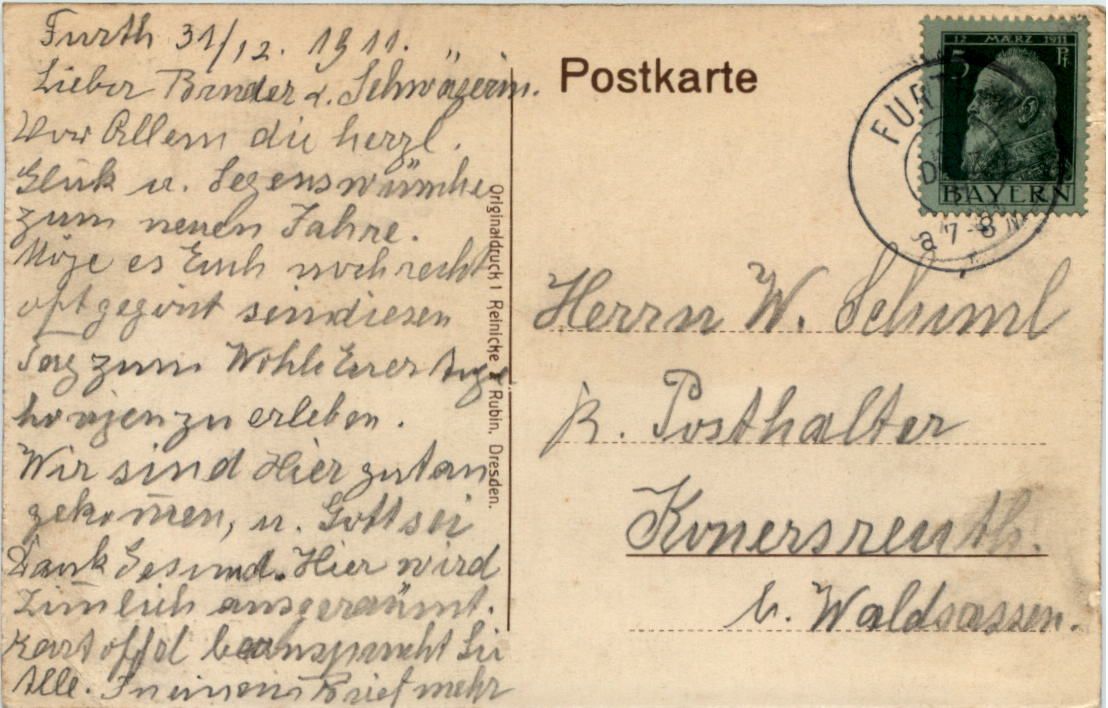 Furth 31/12. 1911.
Lieber Bruder u. Schwägerin.
Vor Allem die herzl.
Glük u. Segenswünche
zum neuen Jahre.
Möge es Euch noch recht
oft gegönt sein diesen
Tag zum Wohle Eurer Ange
horigen zu erleben.
Wir sind Hier gut an
gekom̄en, u. Gott sei
Dank Gesund. Hier wird
Zimlich ausgeräumt.
Kartoffel beansprucht Sie
Alle. In einem Brief mehr
Originaldruck v. Reinicke & Rubin, Dresden.
Postkarte
12 MÆRZ 1911
5 Pf.
BAYERN
FURTH
7-8 N
Herrn W. Schiml
k. Posthalter
Konersreuth.
b. Waldsassen.